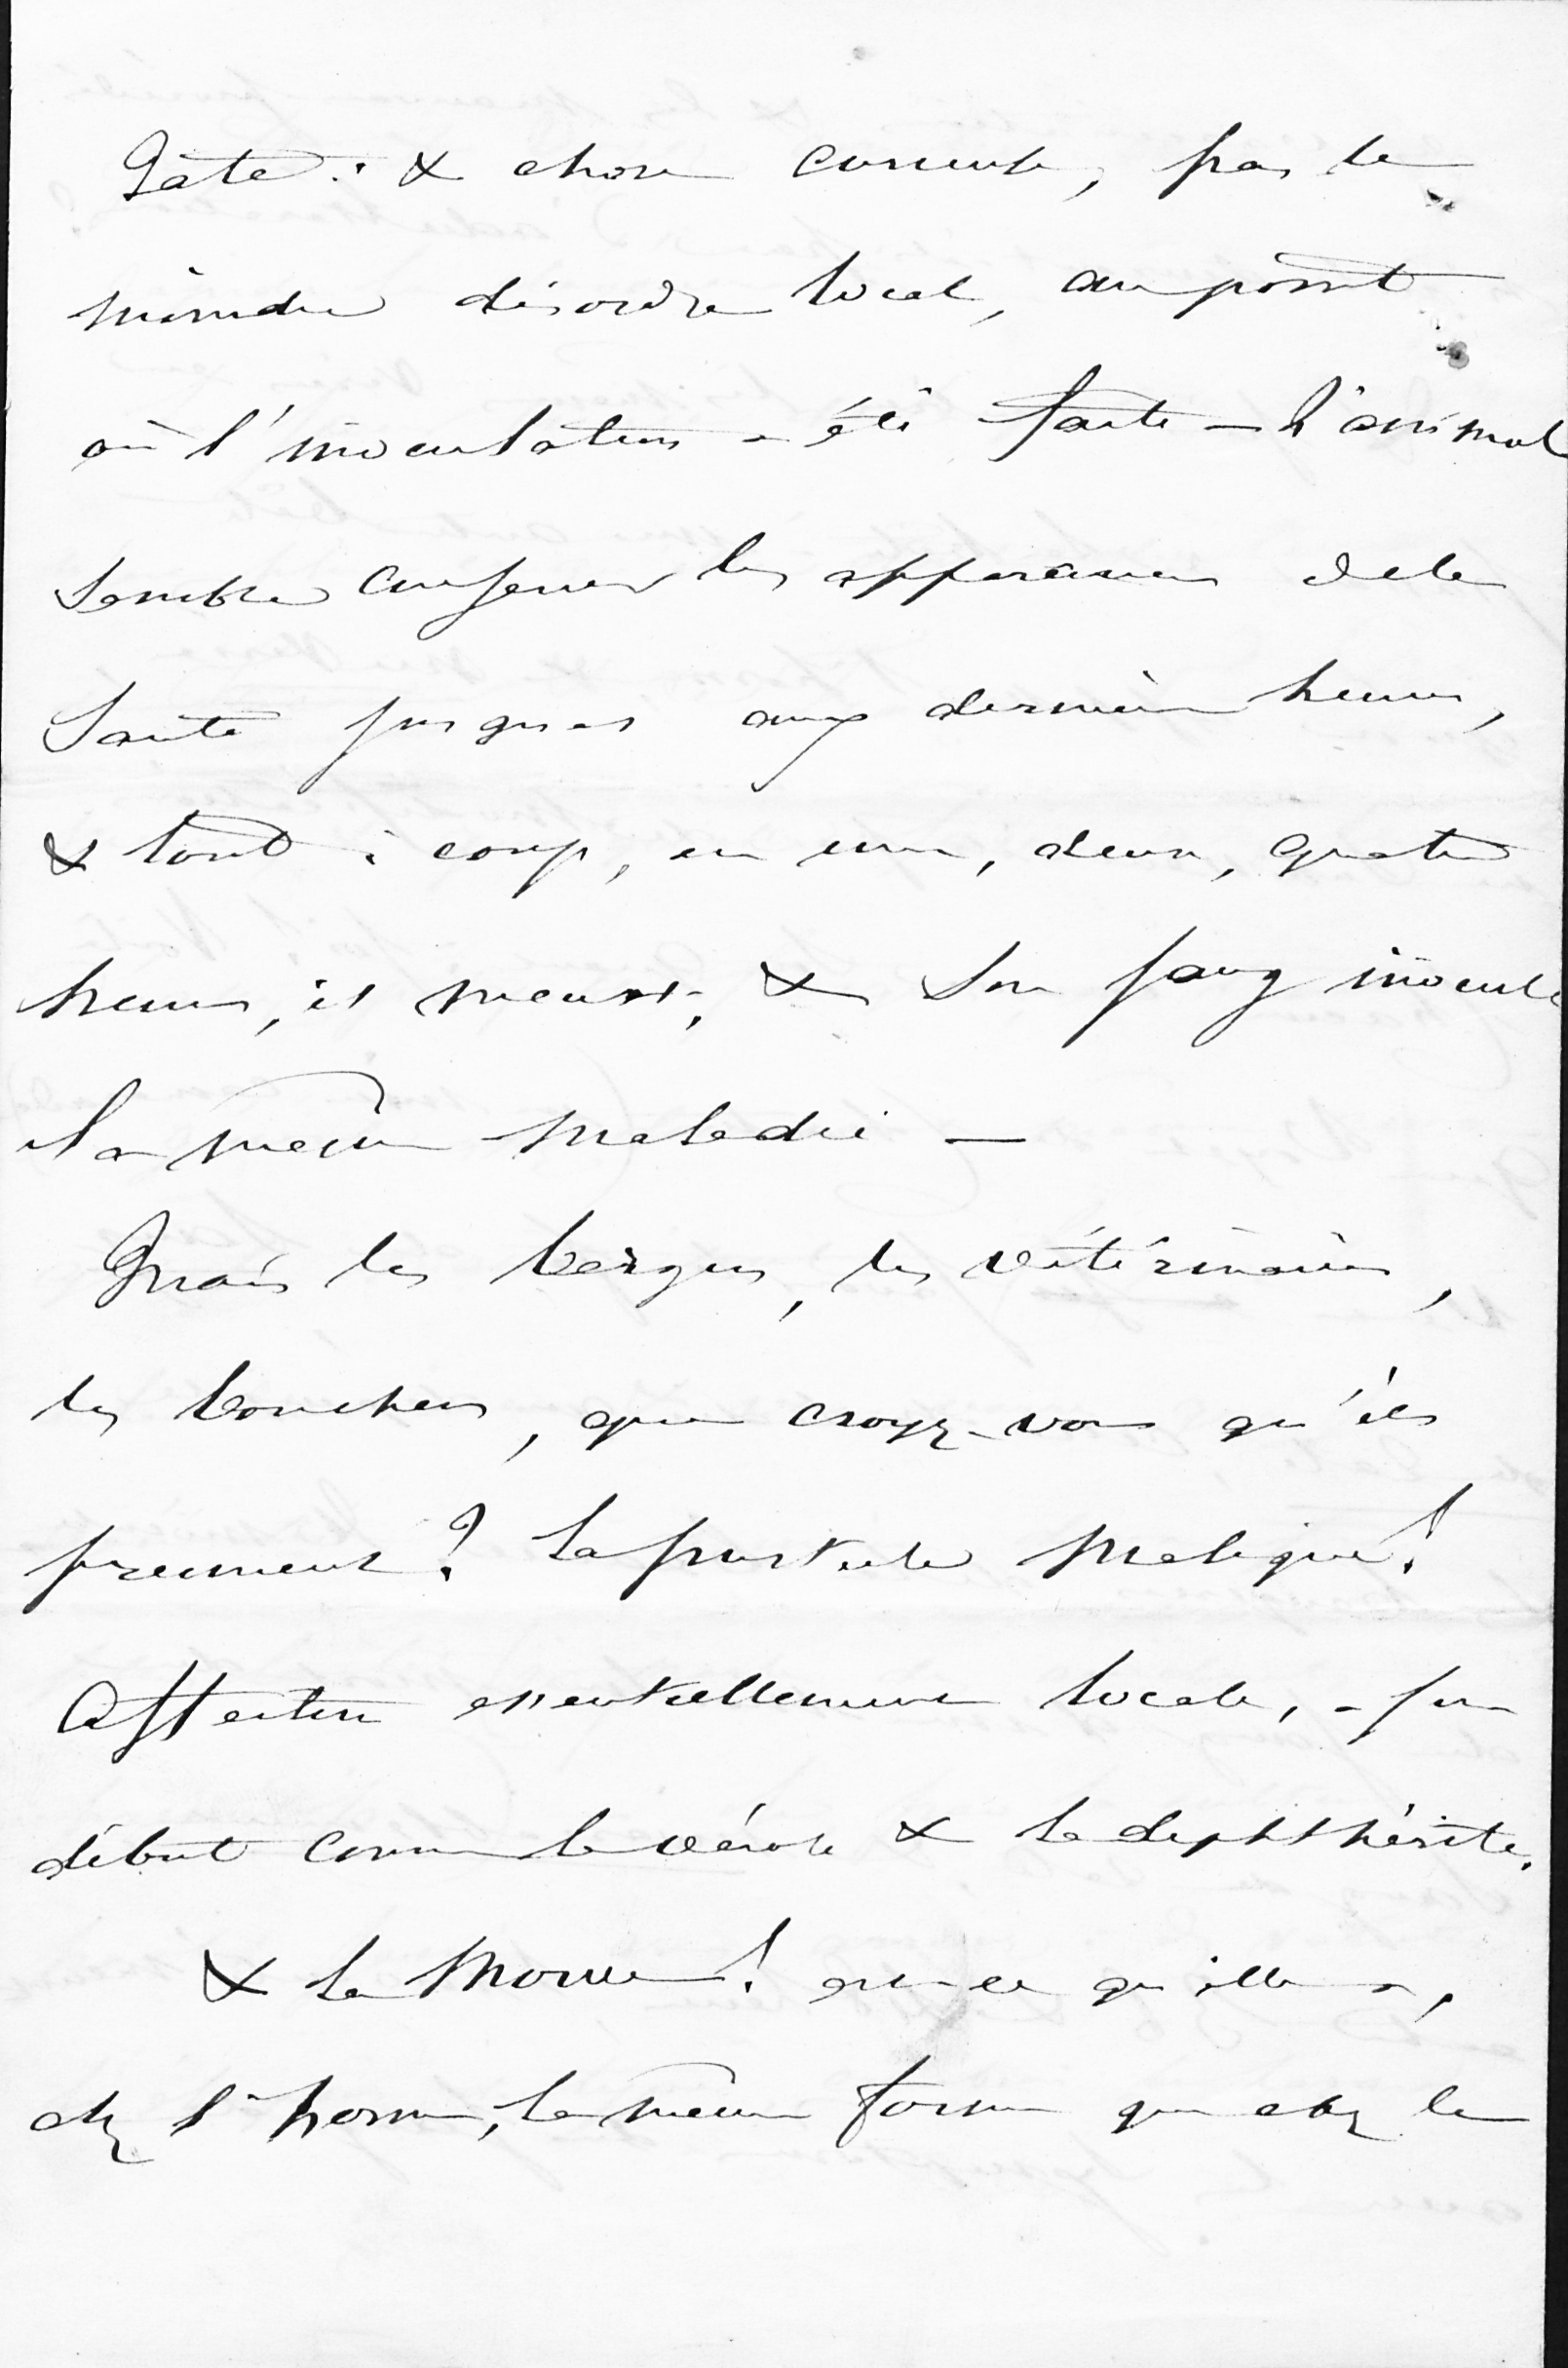 Gâte : & chose curieuse, pas le
moindre désordre local, au point
où l'inoculation a été faite — L'animal
semble conserver les apparences de la
santé jusques aux dernières heures,
& tout à coup, en une, deux, quatre
heures, il meurt, & son sang inocule
la même maladie —
Mais les bergers, les vétérinaires,
les bouchers, que croyez-vous qu'ils
prennent ? La pustule maligne !
Affection essentiellement locale, a son
début comme la vérole & la diphthérite.
& la Morve ! est-ce qu'elle a,
chez l'homme, la même forme que chez le